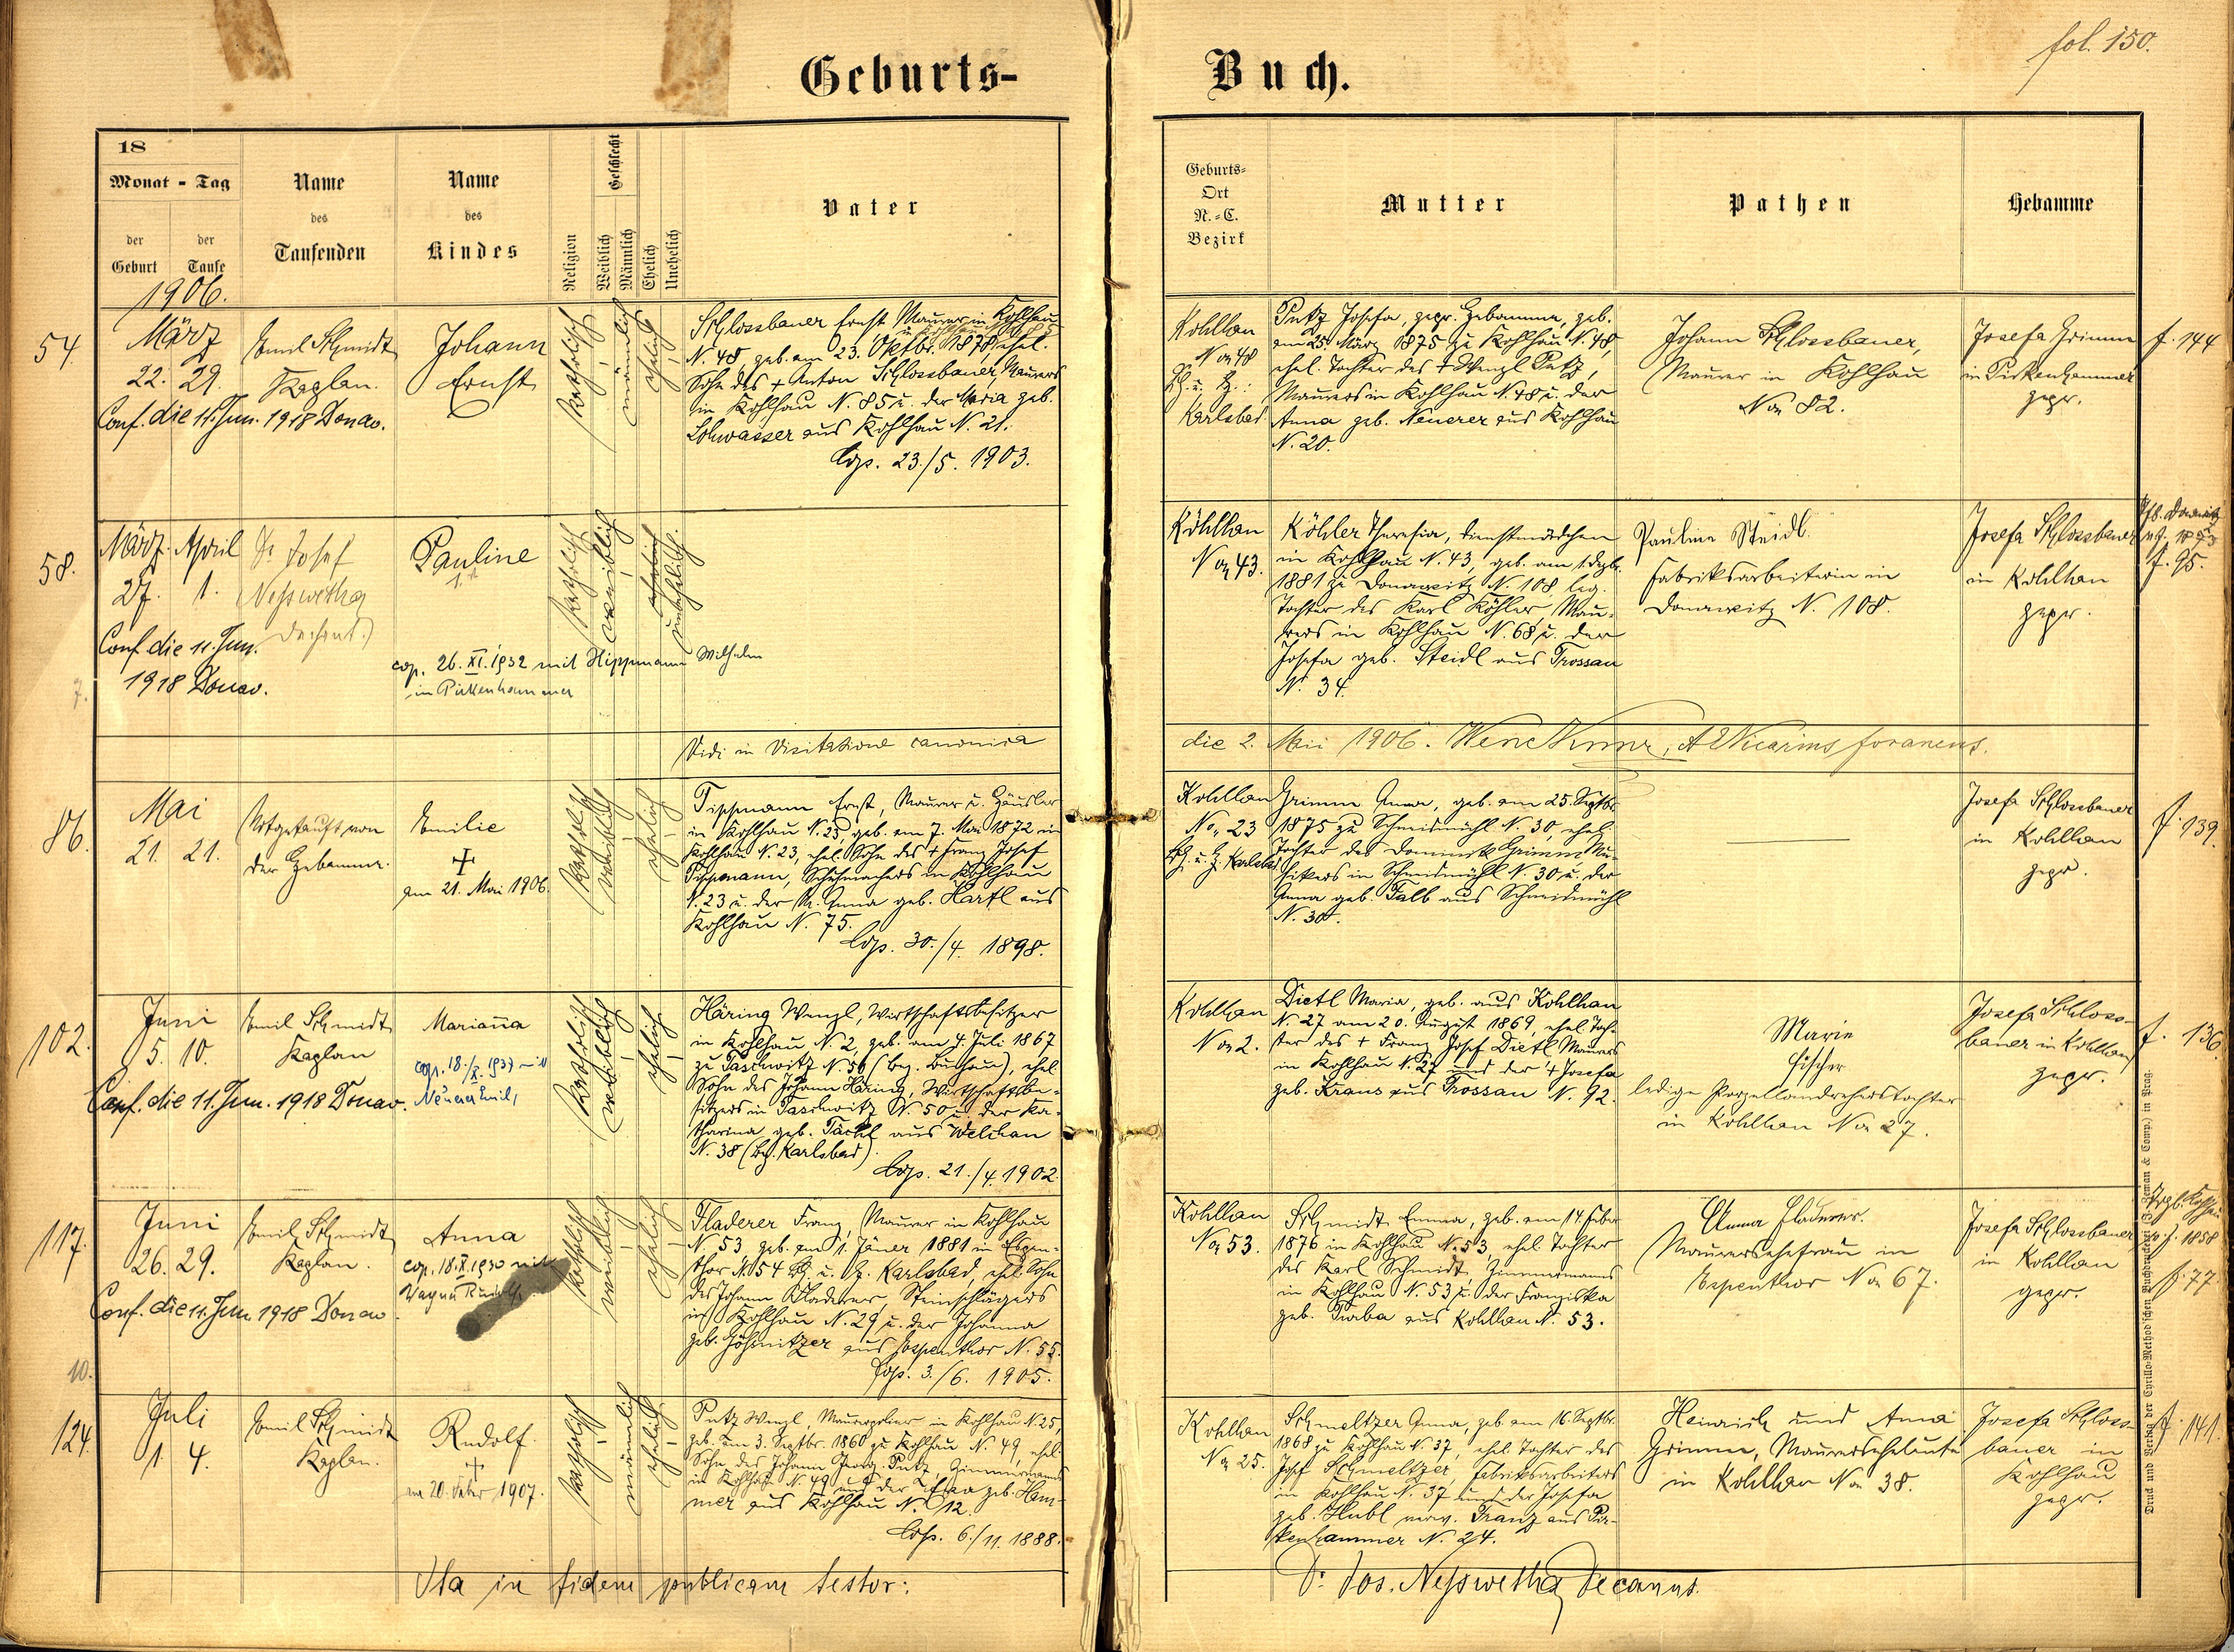 fol. 150.
Geburts-Buch.
18
Monat - Tag
der Geburt
der Taufe
Name des Taufenden
Name des Kindes
Religion
Geschlecht
Weiblich
Männlich
Ehelich
Unehelich
Vater
Geburts-Ort N.-C. Bezirk
Mutter
Pathen
Hebamme
1906.
54.
März
22. 29.
Conf. die 11. Jun. 1918 Donav.
Emil Schmidt
Kaplan.
Johann
Ernst
katholisch
männlich
ehelich
Schlossbauer Ernst Maurer in Kohlhau
N. 48, geb. am 23. Oktbr. 1878, ehel.
Sohn des + Anton Schlossbauer, Maurers
in Kohlhau N. 85 u. der Maria geb.
Lohwasser aus Kohlhau N. 21.
Cop. 23./5. 1903.
Kohlhau
No 48
Bh. u. Bz.:
Karlsbad
Putz Josefa, gepr. Hebamme, geb.
am 25. März 1875 zu Kohlhau N. 48,
ehel. Tochter des + Wenzl Putz,
Maurers in Kohlhau N. 48 u. der
Anna geb. Neuerer aus Kohlhau
N. 20.
Johann Schlossbauer,
Maurer in Kohlhau
No 82.
Josefa Grimm
in Pirkenhammer
gepr.
f. 144
58.
März. April
27. 1.
Conf. die 11. Jun.
1918 Donav.
7.
Dr. Josef
Nesswetha
Dechant.
Pauline
cop. 26. XI. 1932 mit Hippmann Wilhelm
in Pirkenhammer
katholisch
weiblich
unehelich
Köhlhau
No 43.
Köhler Theresia, Dienstmädchen
in Kohlhau N. 43, geb. am 1. Dezbr.
1881 zu Donawitz N. 108, leg.
Tochter des Karl Köhler, Mau-
rers in Kohlhau N. 68 u. der
Josefa geb. Steidl aus Trossau
N. 34.
Pauline Steidl.
Fabriksarbeiterin in
Donawitz N. 108.
Josefa Schlossbauer
in Kohlhau
gepr.
f. 95.
Vidi in Visitatione canonica
die 2. Maii 1906.
Vicarius foraneus.
86.
Mai
21. 21.
Notgetauft von
der Hebamme.
Emilie
+
am 21. Mai 1906.
katholisch
weiblich
ehelich
Tippmann Ernst, Maurer u. Häusler
in Kohlhau N. 23, geb. am 7. Mai 1872 in
Kohlhau N. 23, ehel. Sohn des + Franz Josef
Tippmann, Schuhmachers in Kohlhau
N. 23 u. der M. Anna geb. Hartl aus
Kohlhau N. 75.
Cop. 30./4. 1898.
Kohlhau
No. 23
Bh. u. Bz. Karlsbad
Grimm Anna, geb. am 25. Septbr.
1875 zu Schneidmühl N. 30, ehel.
Tochter des Dominik Grimm Mu-
sikers in Schneidmühl N. 30 u. der
Anna geb. Falb aus Schneidmühl
N. 30.
Josefa Schlossbauer
in Kohlhau
gepr.
f. 139.
102.
Juni
5. 10.
Conf. die 11. Jun. 1918 Donav.
Emil Schmidt
Kaplan
Marianna
cop. 18./X. 1937 mit
Neuerer Emil,
katholisch
weiblich
ehelich
Häring Wenzl, Wirtschaftsbesitzer
in Kohlhau N. 2, geb. am 4. Juli 1867
zu Taschwitz N. 50 (Bez. Buchau), ehel.
Sohn des Johann Häring, Wirtschaftsbe-
sitzers in Taschwitz N. 50 u. der Ka-
tharina geb. Täckl aus Welchau
N. 38 (Bz. Karlsbad).
Cop. 21./4. 1902.
Kohlhau
No 2.
Dietl Maria, geb. aus Kohlhau
N. 27 am 20. August 1869, ehel. Toch-
ter des + Franz Josef Dietl Maurers
in Kohlhau N. 27 und der + Josefa
geb. Kraus aus Trossau N. 92.
Marie
Fischer
ledige Porzellandreherstochter
in Kohlhau No 27.
Josefa Schloss-
bauer in Kohlhau
gepr.
f. 136.
117.
Juni
26. 29.
Conf. die 11. Jun. 1918 Donav.
10.
Emil Schmidt
Kaplan.
Anna
cop. 18. X. 1930 mit
Wagner Rudolf.
katholisch
weiblich
ehelich
Fladerer Franz, Maurer in Kohlhau
N. 53, geb. am 1. Jäner 1881 in Espen-
thor N. 54 Bh. u. Bz. Karlsbad, ehel. Sohn
des Johann Fladerer, Steinschlägers
in Kohlhau N. 29 u. der Johanna
geb. Johsnitzer aus Espenthor N. 55.
Cop. 3./6. 1905.
Kohlhau
No 53.
Schmidt Emma, geb. am 14. Feber
1876 in Kohlhau N. 53, ehel. Tochter
des Karl Schmidt, Zimmermanns
in Kohlhau N. 53 u. der Franziska
geb. Turba aus Kohlhau N. 53.
Anna Fladerer.
Maurersehefrau in
Espenthor No 67.
Josefa Schlossbauer
in Kohlhau
gepr.
f. 77.
124.
Juli
1. 4.
Emil Schmidt
Kaplan.
Rudolf.
+
am 20. Feber 1907.
katholisch
männlich
ehelich
Putz Wenzl, Maurerpolier in Kohlhau N. 25,
geb. am 3. Septbr. 1860 zu Kohlhau N. 49, ehel.
Sohn des Johann Georg Putz, Zimmermanns
in Kohlhau N. 49 und der Eva geb. Ham-
mer aus Kohlhau N. 12.
Cop. 6./11. 1888.
Kohlhau
No 25.
Schmeltzer Anna, geb. am 16. Septbr.
1868 zu Kohlhau N. 37, ehel. Tochter des
Josef Schmeltzer, Fabriksarbeiters
in Kohlhau N. 37 und der Josefa
geb. Hubl verw. Franz aus Pir-
kenhammer N. 24.
Heinrich und Anna
Grimm, Maurerseheleute
in Kohlhau No 38.
Josefa Schloss-
bauer in
Kohlhau
gepr.
f. 141.
Ita in fidem publicam testor:
Dr. Jos. Nesswetha Decanus.